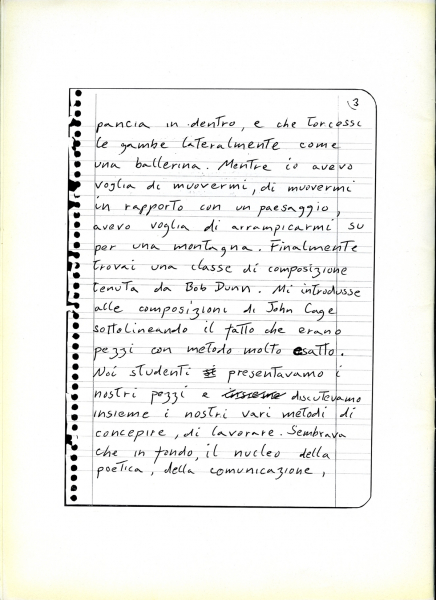 3
pancia in dentro, e che torcessi
le gambe lateralmente come
una ballerina. Mentre io avevo
voglia di muovermi, di muovermi
in rapporto con un paesaggio,
avevo voglia di arrampicarmi su
per una montagna. Finalmente
trovai una classe di composizione
tenuta da Bob Dunn. Mi introdusse
alle composizioni di John Cage
sottolineando il fatto che erano
pezzi con metodo molto esatto.
Noi studenti si presentavamo i
nostri pezzi e insieme discutevamo
insieme i nostri vari metodi di
concepire, di lavorare. Sembrava
che in fondo, il nucleo della
poetica, della comunicazione,